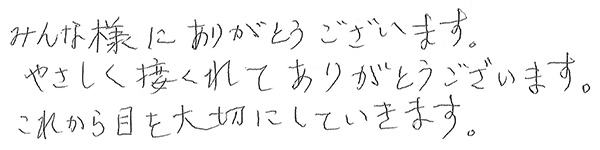 みんな様にありがとうございます。
やさしく接くれてありがとうございます。
これから目を大切にしていきます。